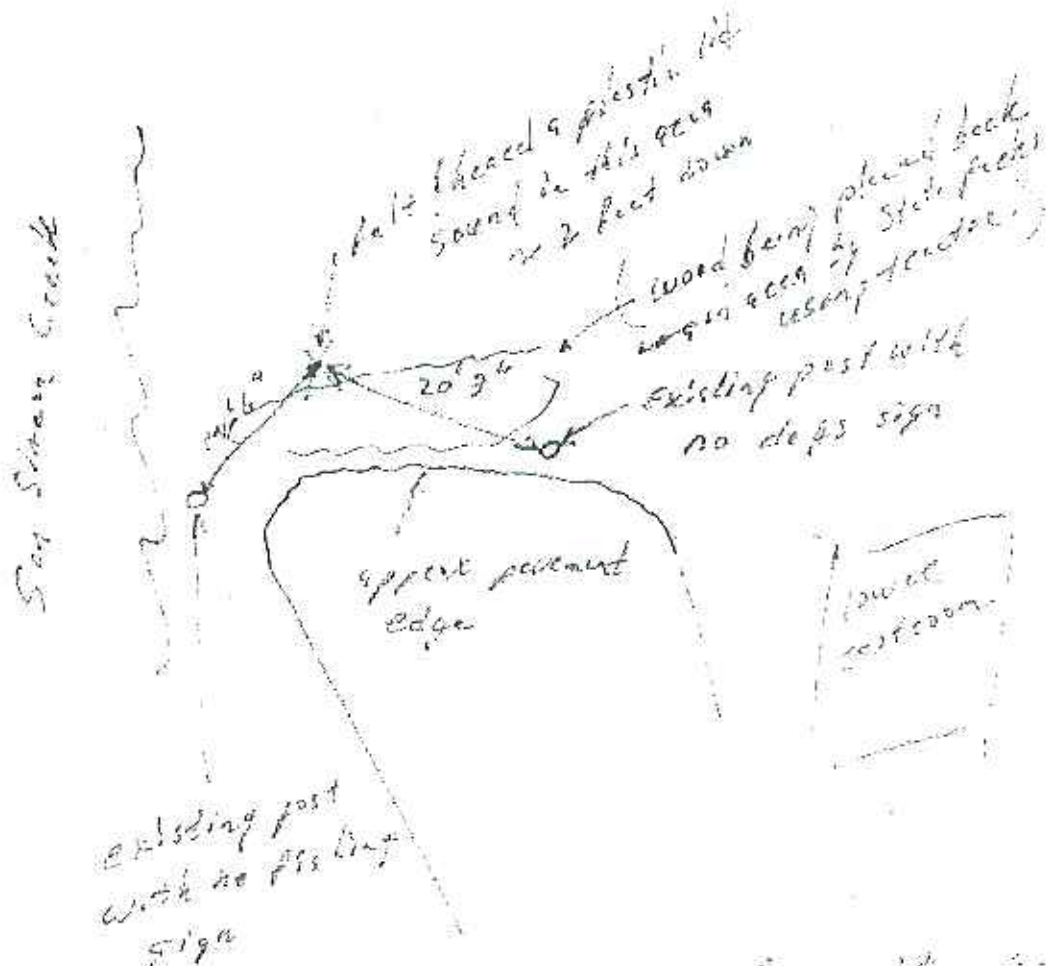 felt & heard a plastic lid
sound in this area
≈ 2 feet down
wood being placed back
in area by State parks
using tractor.
20' 9"
Existing post with
no dogs sign
San Simeon Creek
approx pavement
edge
lower
restroom
existing post
with no fishing
sign